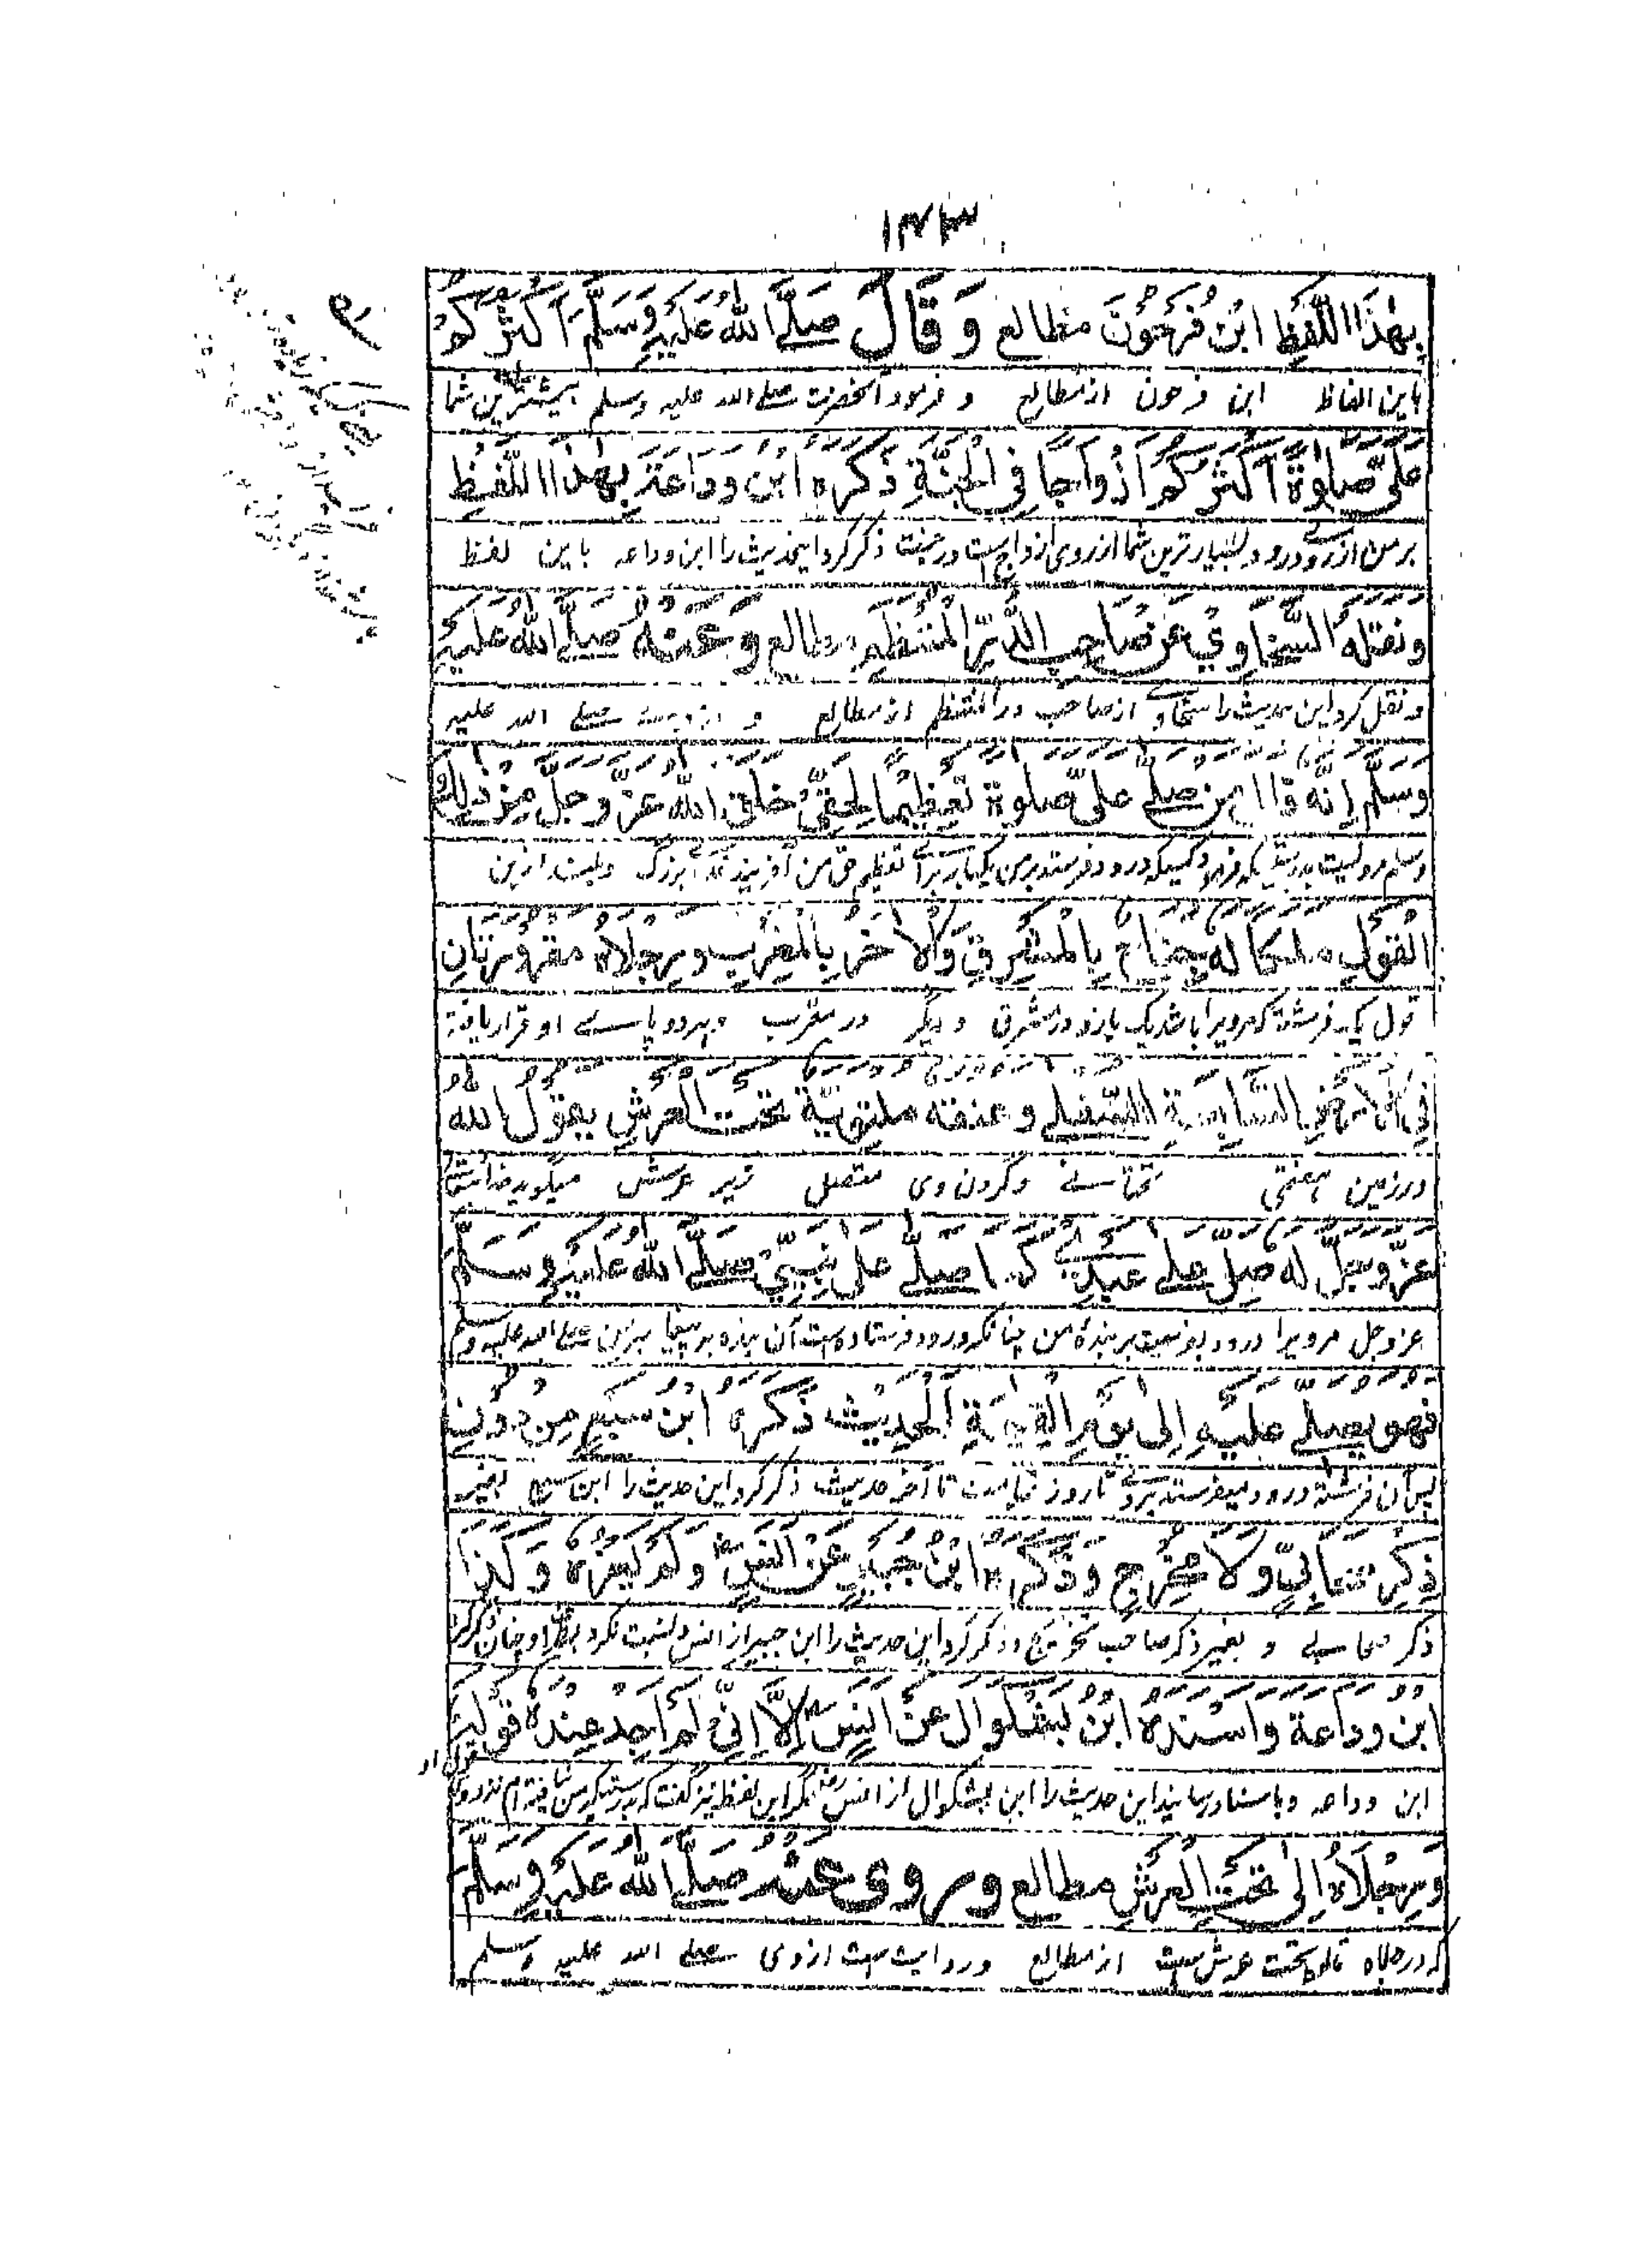 ۱۴۳
بِهٰذَا اللَّفْظِ ابْنُ فَرْحُوْنَ مطالع وَقَالَ صَلَّى اللهُ عَلَيْهِ وَسَلَّمَ اَكْثَرُكُمْ
باین الفاظ ابن فرحون از مطالع و فرمود آنحضرت صلے الله علیه وسلم بیشترین شما
عَلَيَّ صَلٰوةً اَكْثَرُكُمْ اَزْوَاجًا فِي الْجَنَّةِ ذَكَرَهُ ابْنُ وَدَاعَةَ بِهٰذَا اللَّفْظِ
بر من از روے درود بسیارترین شما از روی ازواج است در جنت ذکر کرد اینحدیث را ابن وداعه باین لفظ
وَنَقَلَهُ السَّخَاوِيُّ عَنْ صَاحِبِ الدُّرِّ الْمُنَظَّمِ مطالع وَعَنْهُ صَلَّى اللهُ عَلَيْهِ
و نقل کرد این حدیث را سخاوی از صاحب در المنتظم از مطالع و صلے الله علیه
وَسَلَّمَ اِنَّهُ قَالَ مَنْ صَلّٰى عَلَيَّ صَلٰوةً تَعْظِيْمًا لِحَقِّيْ خَلَقَ اللهُ عَزَّ وَجَلَّ مِنْ ذٰلِكَ
وسلم درود فرستد بر من یکبار برائے تعظیم حق من بزرگ ازین
الْقَوْلِ مَلَكًا لَهُ جَنَاحٌ بِالْمَشْرِقِ وَالْاٰخَرُ بِالْمَغْرِبِ وَرِجْلَاهُ مَقْرُوْرَتَانِ
قول یک فرشته که مرویرا باشد یک بازو در مشرق و دیگر در مغرب و هر دو پاے او قرار یافته
فِي الْاَرْضِ السَّابِعَةِ السُّفْلٰى وَعُنُقُهُ مُلْتَوِيَةٌ تَحْتَ الْعَرْشِ يَقُوْلُ اللهُ
در زمین هفتمی تحتانے و گردن وی متصل زیر عرش میگوید
عَزَّ وَجَلَّ لَهُ صَلِّ عَلٰى عَبْدِيْ كَمَا صَلّٰى عَلٰى نَبِيِّيْ صَلَّى اللهُ عَلَيْهِ وَسَلَّمَ
عز وجل مرویرا درود بفرست بر بندهٔ من چنانکه درود فرستاده است آن بنده بر پیغامبر من صلے الله علیه وسلم
فَهُوَ يُصَلِّيْ عَلَيْهِ اِلٰى يَوْمِ الْقِيٰمَةِ الْحَدِيْثَ ذَكَرَهُ ابْنُ سَبْعٍ مِنْ دُوْنِ
پس آن فرشته درود میفرستد بروے تا روز قیامت تا آخر حدیث ذکر کرد این حدیث را ابن سبع بغیر
ذِكْرِ صَحَابِيٍّ وَلَا مُخَرِّجٍ وَذَكَرَهُ ابْنُ جُبَيْرٍ عَنْ اَنَسٍ وَلَمْ يَعْزُهُ وَكَذَا
ذکر صحابے و بغیر ذکر صاحب تخریج و ذکر کرد این حدیث را ابن جبیر از انس و نسبت نکرد
ابْنُ وَدَاعَةَ وَاَسْنَدَهُ ابْنُ بَشْكُوَالَ عَنْ اَنَسٍ اِلَّا اِنِّيْ لَمْ اَجِدْ عِنْدَهُ قَوْلَهُ
قول او
ابن وداعه و باسناد رسانید این حدیث را ابن بشکوال از انس مگر این لفظ
وَرِجْلَاهُ اِلٰى تَحْتِ الْعَرْشِ مطالع وروی عَنْهُ صَلَّى اللهُ عَلَيْهِ وَسَلَّمَ
تحت عرش است از مطالع و روایت است از وی صلے الله علیه وسلم